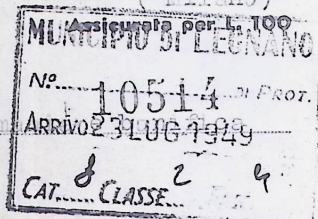 Assicurata per L. 100
MUNICIPIO DI LEGNANO
N.° 10514 DI PROT.
ARRIVO 23 LUG 1949
CAT. 8 CLASSE 2